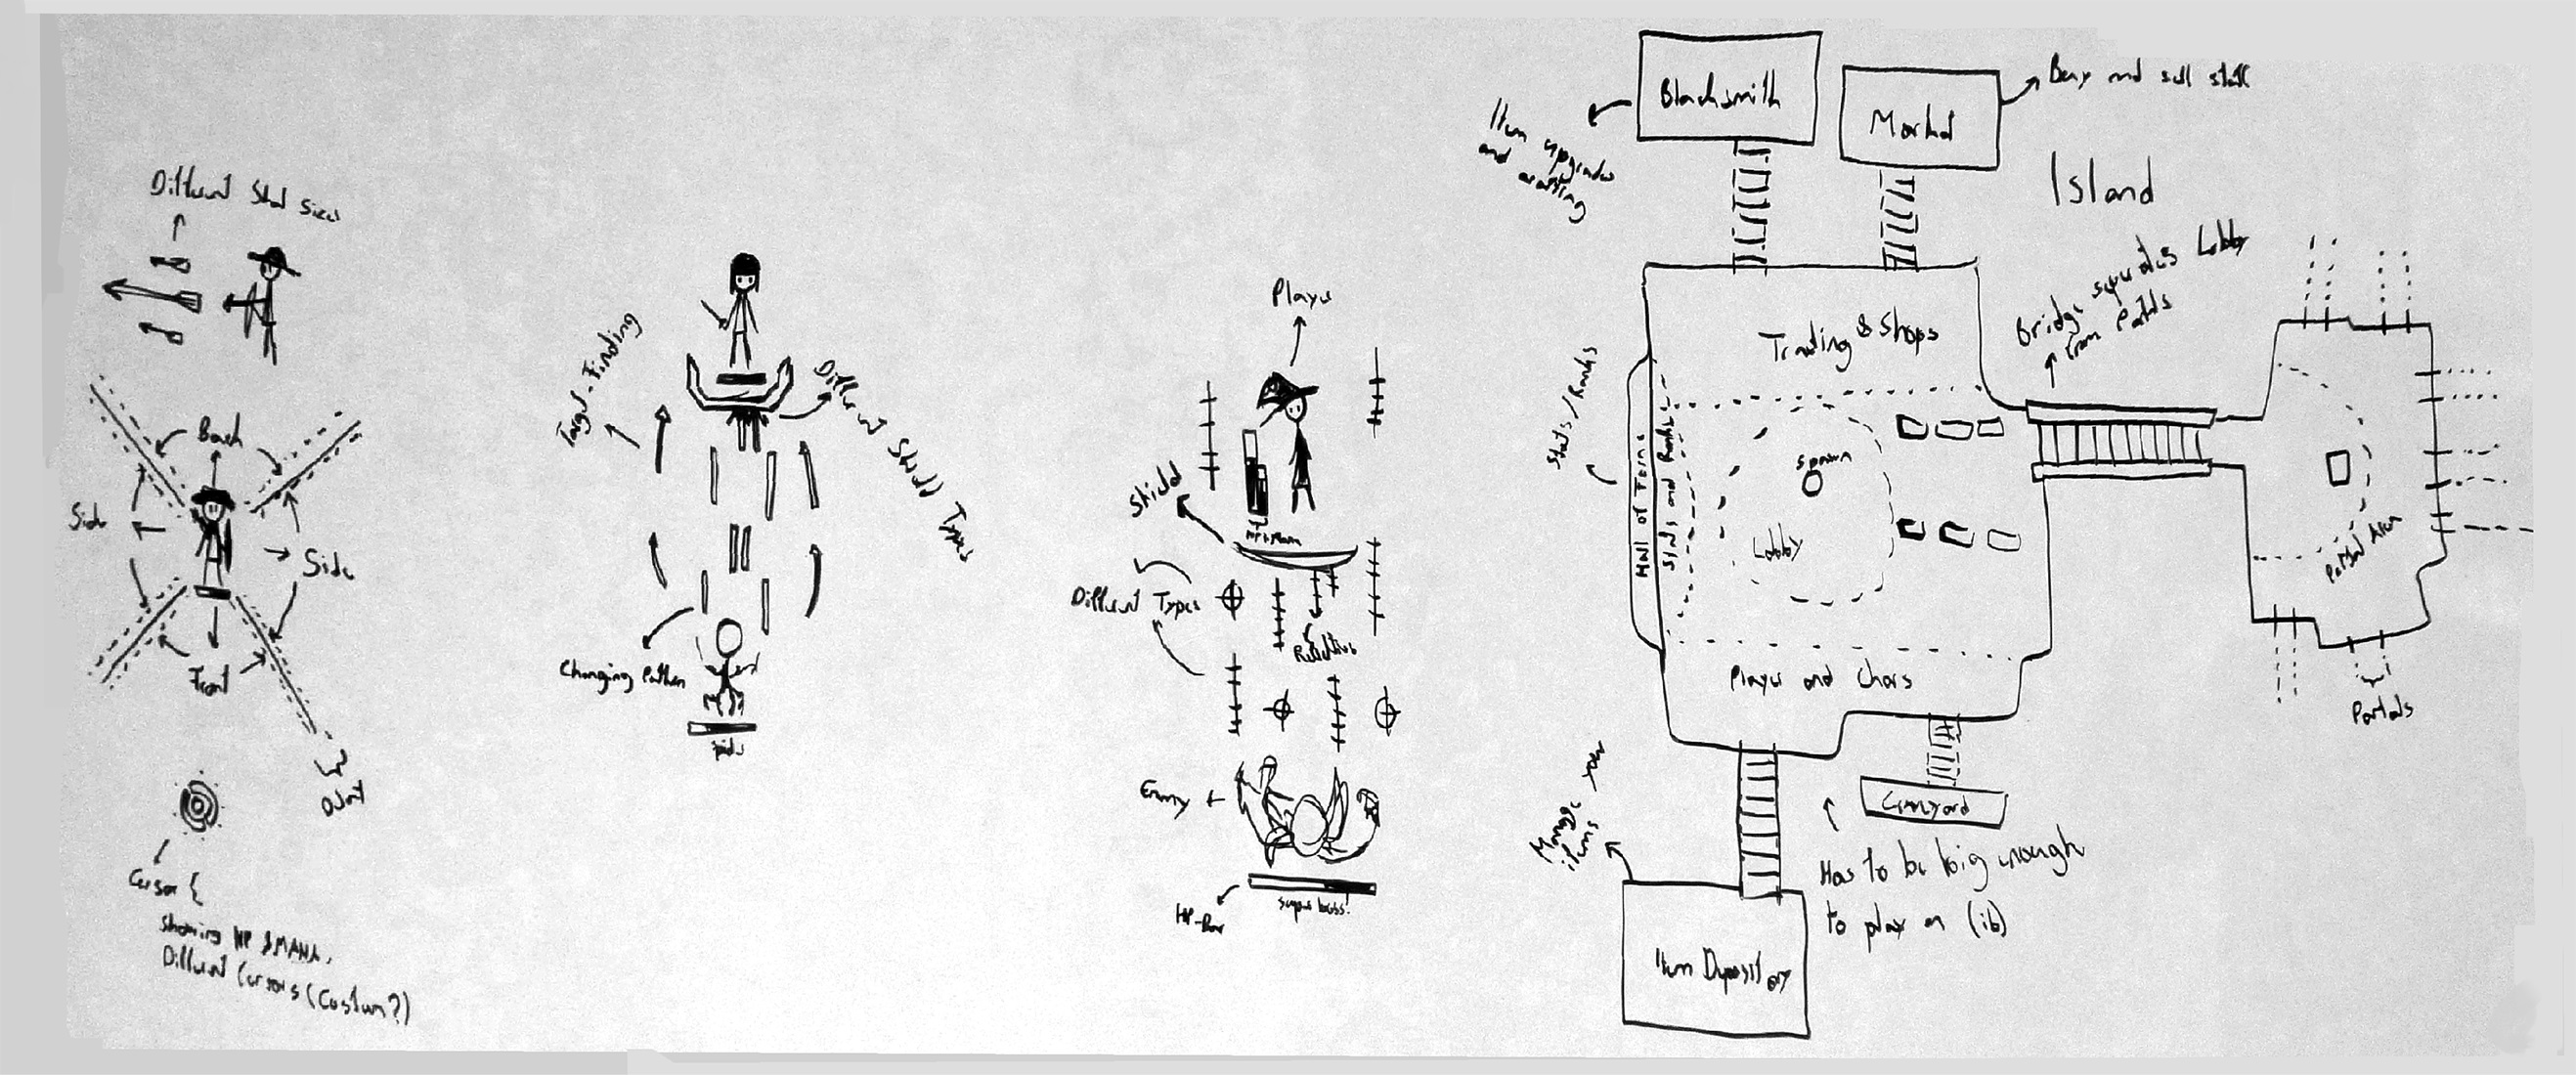 Different Shot Sizes
Back
Side
Side
Front
Cursor {
Showing HP & MANA,
Different Cursors (Custum?)
Target-Finding
Different Shield Types
Changing Pattern
Player
Shield
Different Types
Enemy
HP-Bar
super boss!
Blacksmith
Item upgrades
and crafting
Market
Buy and sell stuff
Island
Bridge separates Lobby
from Portals
Trading & Shops
Stats/Ranks
Hall of Fame
Stats and Ranks
Spawn
Lobby
Portal Area
Portals
Player and Chars
Graveyard
Has to be big enough
to play on (ib)
Manage your
items
Item Depository